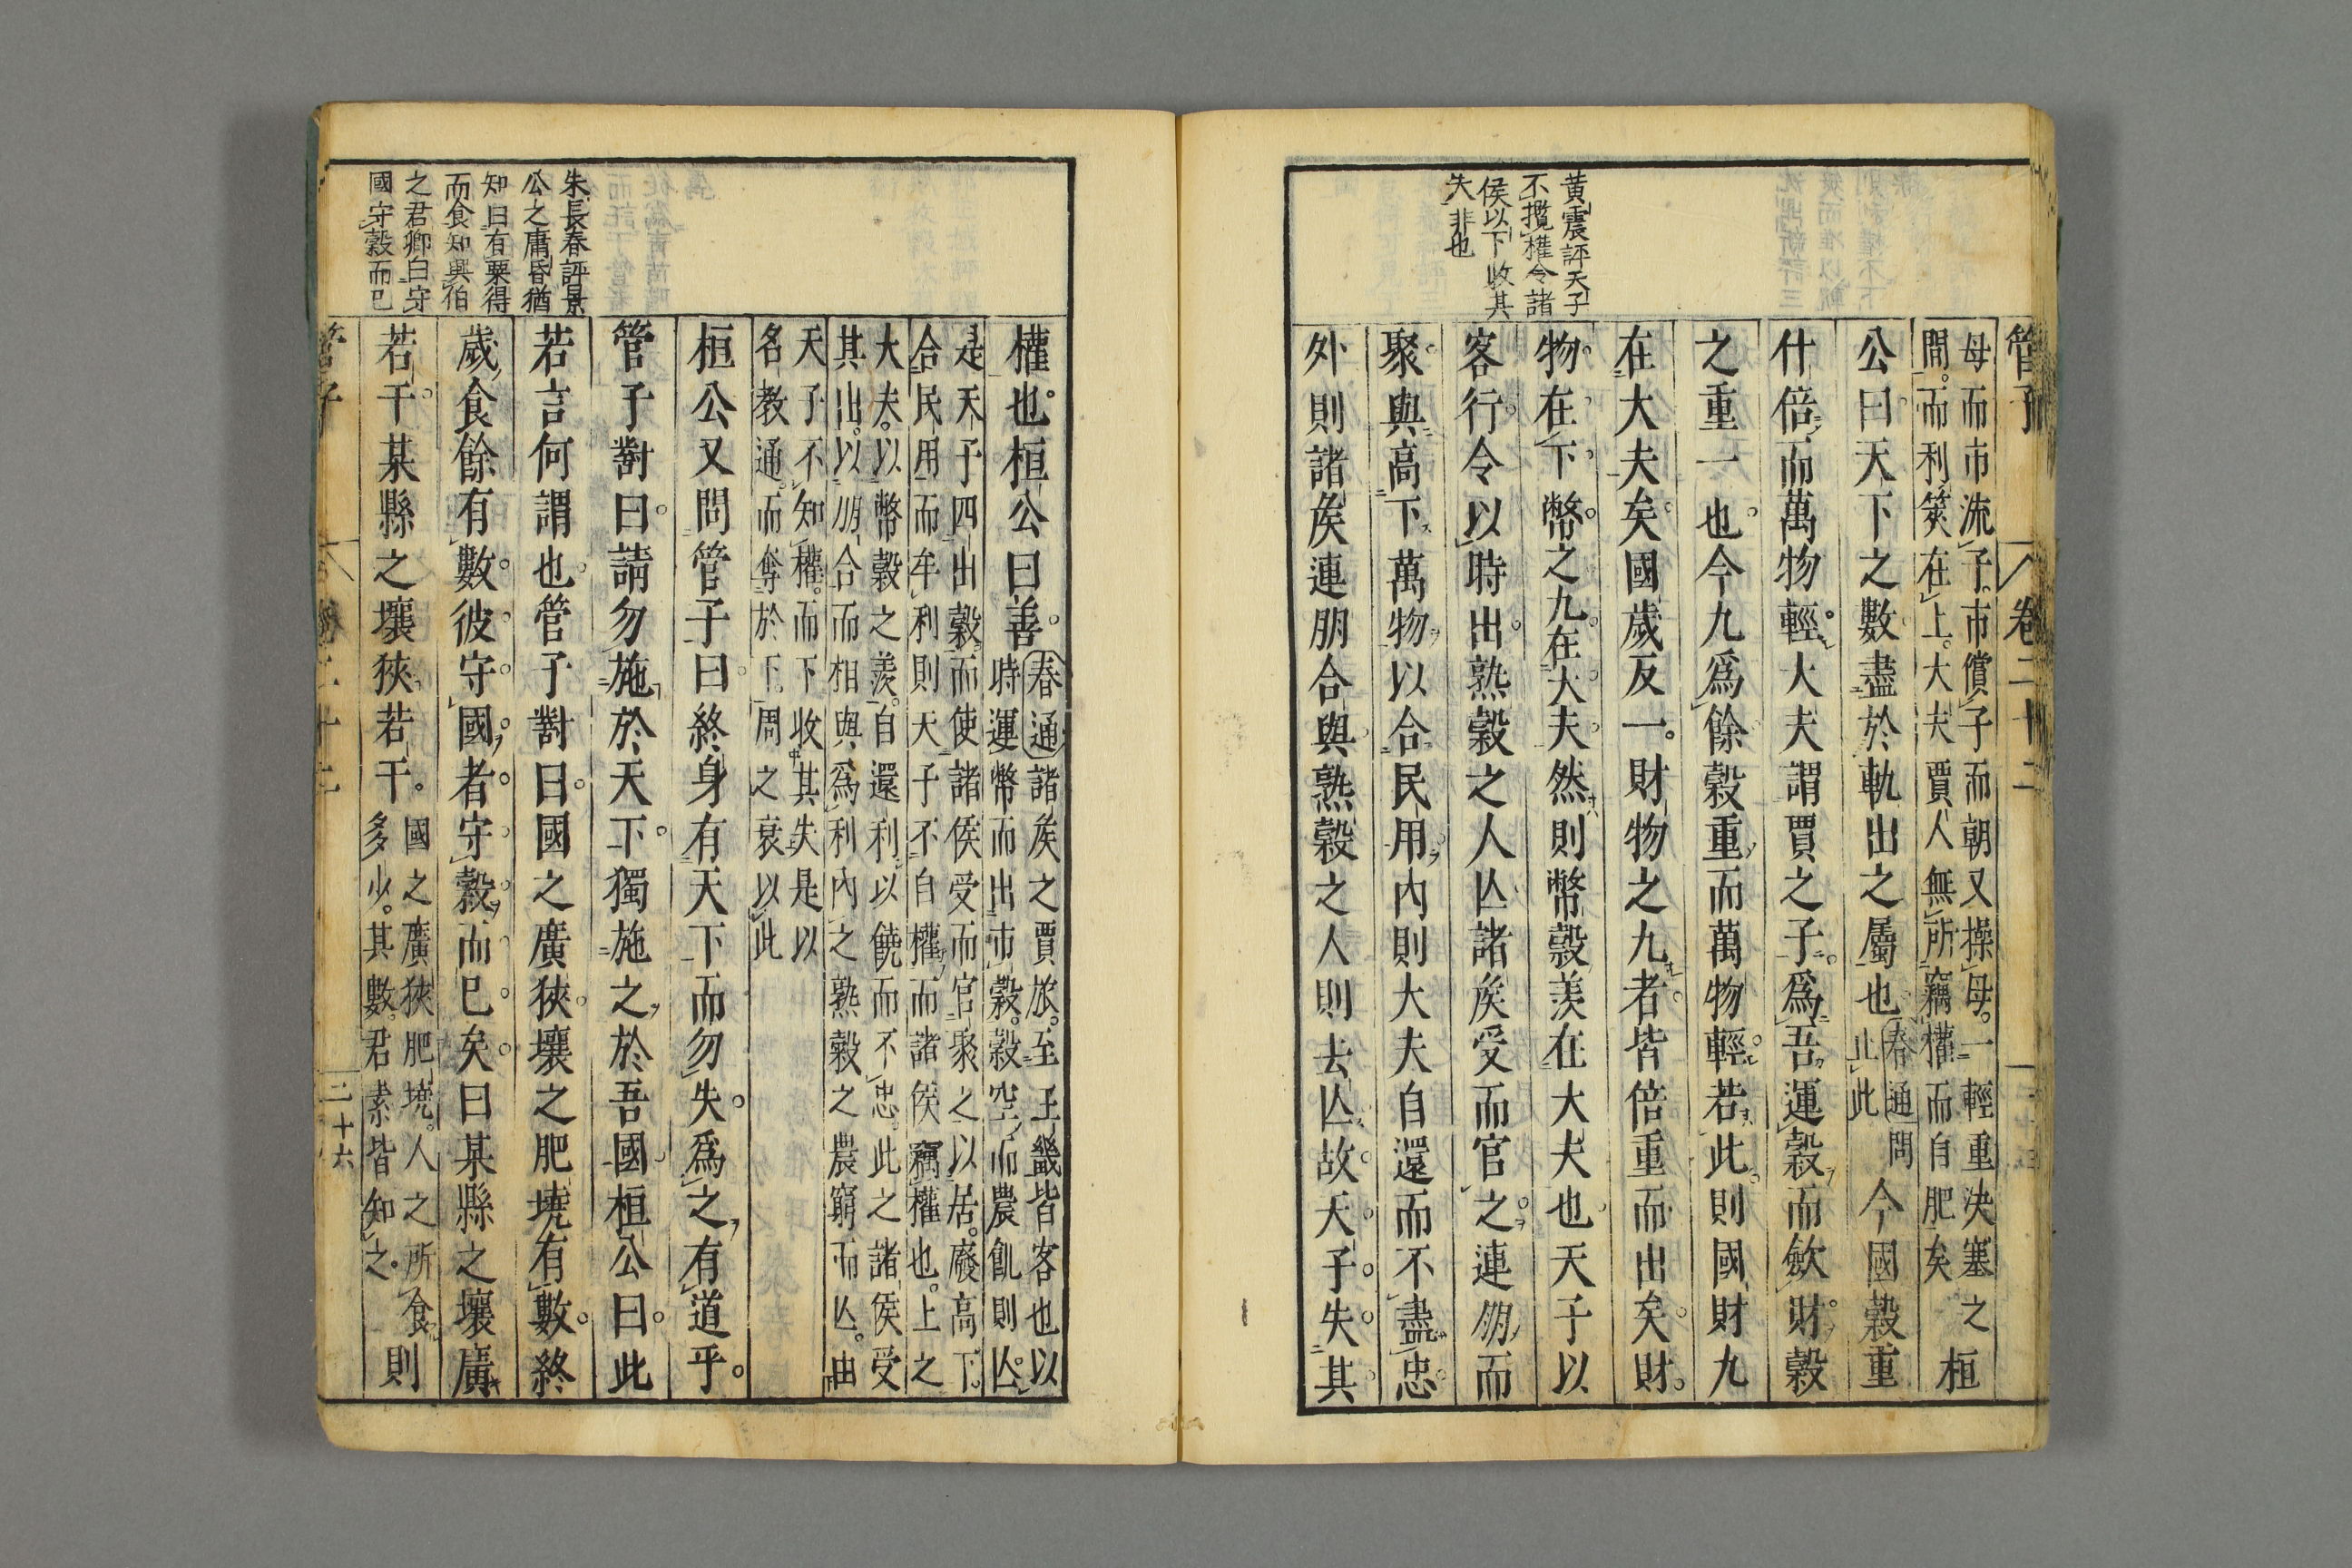 管子
卷二十二
母而市流子市償子而朝又操母一輕重決塞之
間而利筴在上大夫賈人無所竊權而自肥矣
桓
公曰天下之數盡於軌出之屬也
春通問
止此
今國穀重
什倍而萬物輕大夫謂賈之子爲吾運穀而歛財穀
之重一也今九爲餘穀重而萬物輕若此則國財九
在大夫矣國歲反一財物之九者皆倍重而出矣財
物在下幣之九在大夫然則幣穀羡在大夫也天子以
客行令以時出熟穀之人亾諸矦受而官之連朋而
聚與高下萬物以合民用內則大夫自還而不盡忠
外則諸矦連朋合與熟穀之人則去亾故天子失其
黃震評天子
不攬權令諸
侯以下收其
失非也
權也桓公曰善
春通諸矦之賈旅至王畿皆客也以
時運幣而出市穀穀空而農飢則亾
是天子四出穀而使諸侯受而官聚之以居廢高下
合民用而牟利則天子不自權而諸侯竊權也上之
大夫以幣穀之羡自還利以饒而不忠此之諸侯受
其出以朋合而相與爲利內之熟穀之農窮而亾由
天子不知權而下收其失是以
名教通而奪於下周之衰以此
桓公又問管子曰終身有天下而勿失爲之有道乎
管子對曰請勿施於天下獨施之於吾國桓公曰此
若言何謂也管子對曰國之廣狹壤之肥墝有數終
歲食餘有數彼守國者守穀而已矣曰某縣之壤廣
若干某縣之壤狹若干
國之廣狹肥墝人之所食
多少其數君素皆知之
則
朱長春評景
公之庸昏猶
知曰有粟得
而食知與伯
之君卿曰守
國守穀而已
管子
卷二十二
二十六